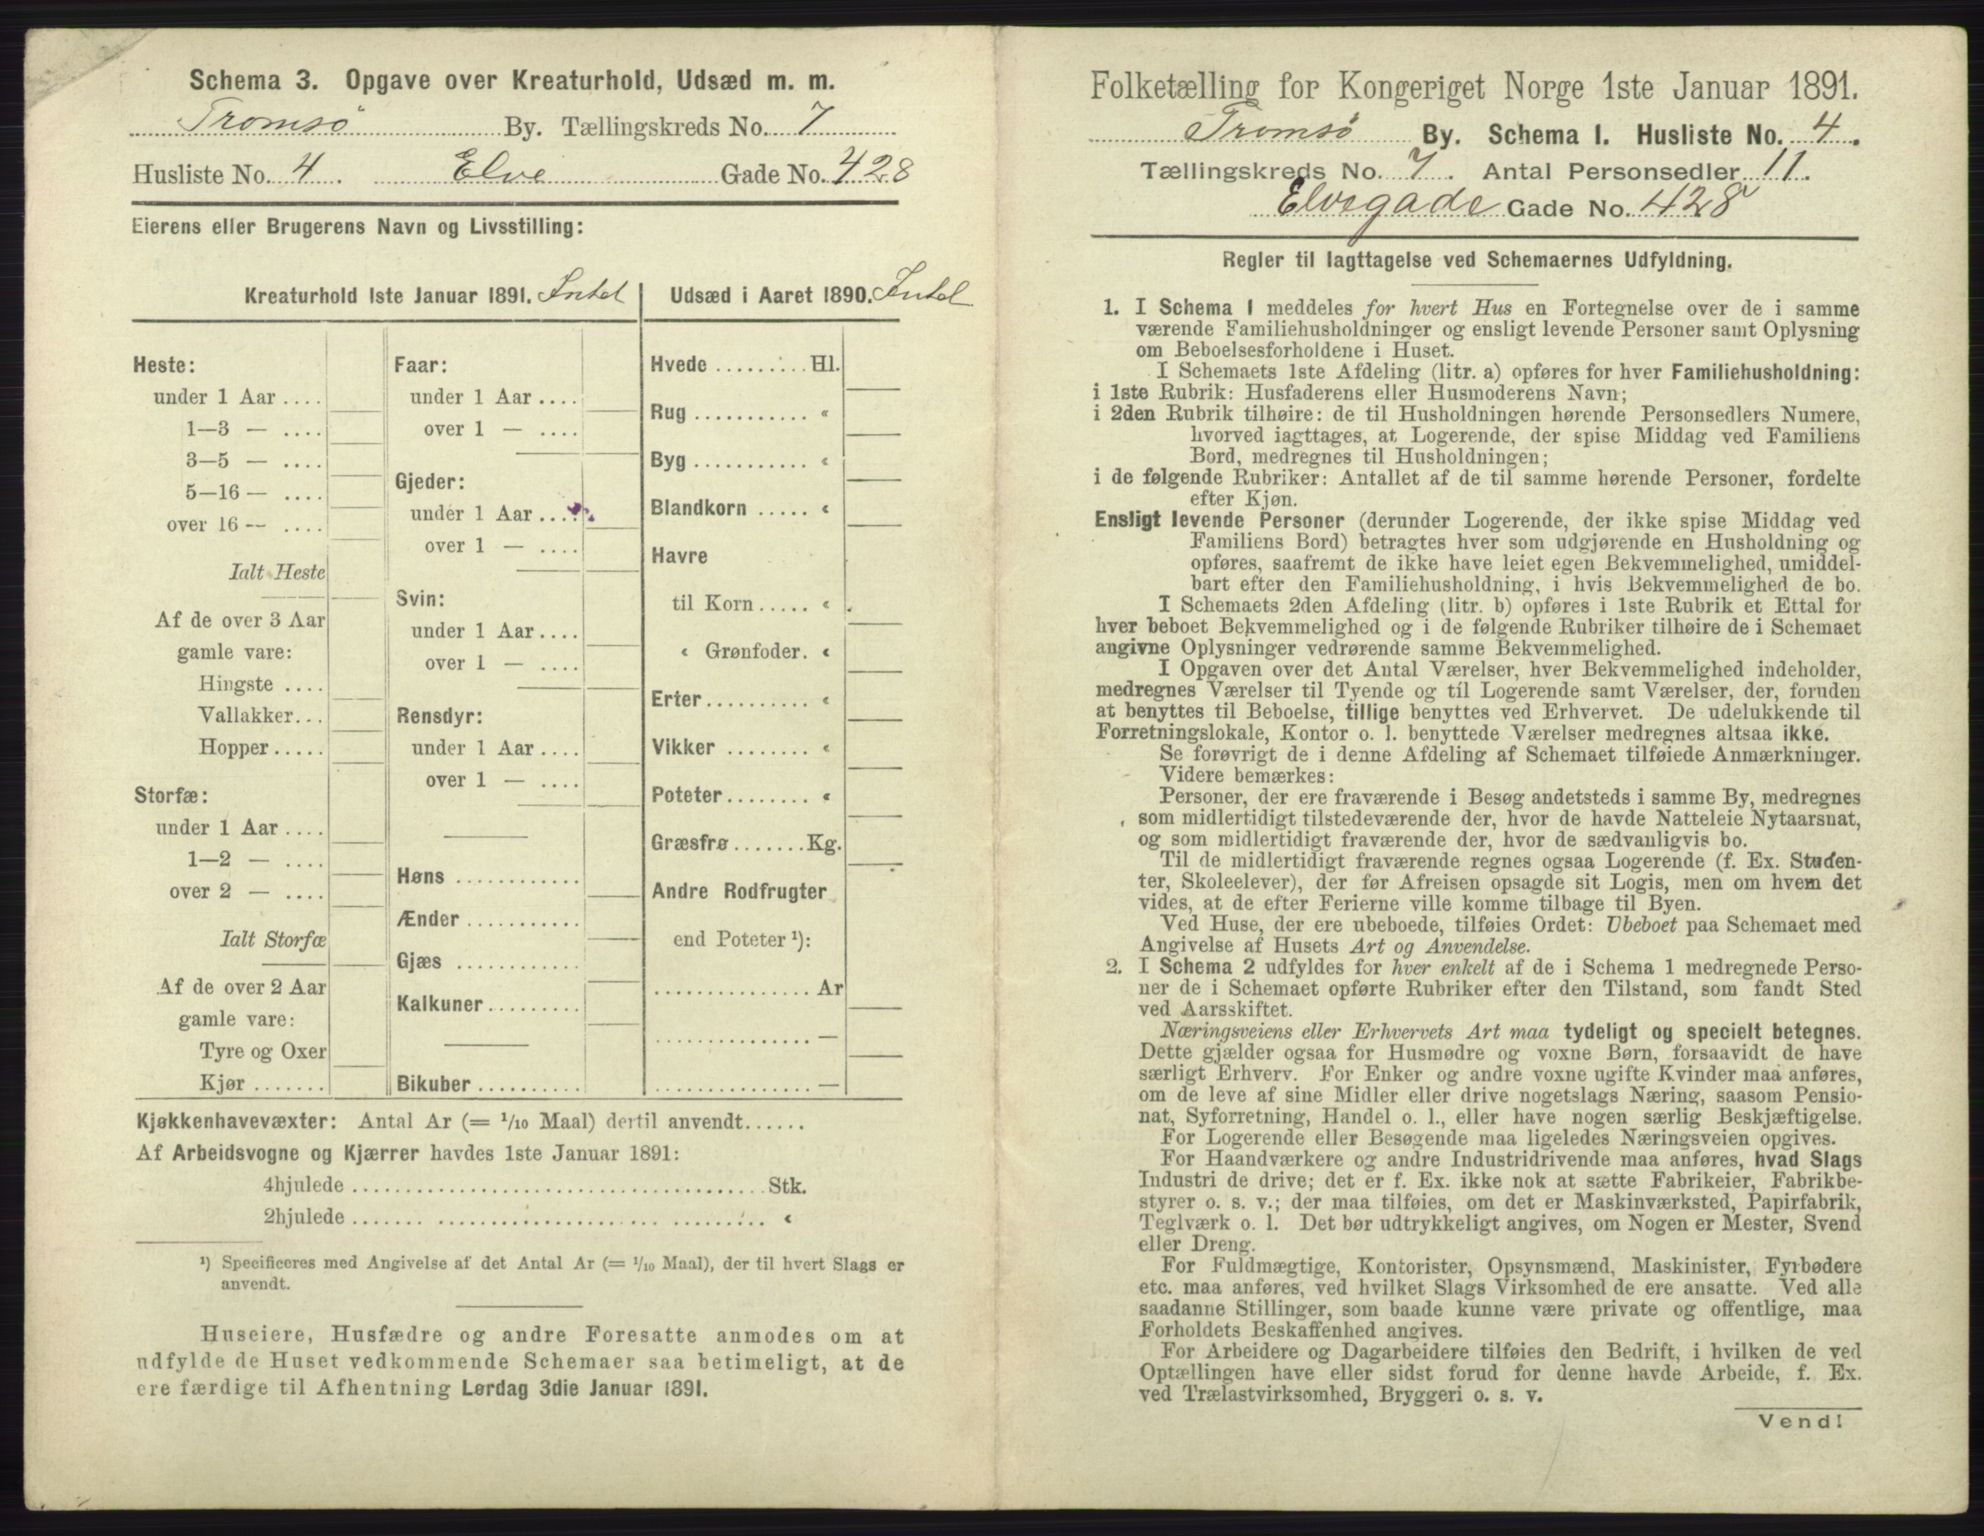 Schema 3. Opgave over Kreaturhold, Udsæd m. m.
Tromsø By. Tællingskreds No. 7
Husliste No. 4. Elve Gade No. 428
Eierens eller Brugerens Navn og Livsstilling:
Kreaturhold 1ste Januar 1891. Intet
Heste:
under 1 Aar ....
1—3 — ....
3—5 — ....
5—16 — ....
over 16 — ....
Ialt Heste
Af de over 3 Aar
gamle vare:
Hingste ....
Vallakker...
Hopper.....
Storfæ:
under 1 Aar ....
1—2 — ....
over 2 — ....
Ialt Storfæ
Af de over 2 Aar
gamle vare:
Tyre og Oxer
Kjør .......
Faar:
under 1 Aar ....
over 1 — ....
Gjeder:
under 1 Aar ....
over 1 — ....
Svin:
under 1 Aar ....
over 1 — ....
Rensdyr:
under 1 Aar ....
over 1 — ....
Høns ............
Ænder ...........
Gjæs ............
Kalkuner .........
Bikuber ..........
Udsæd i Aaret 1890. Intet
Hvede ......... Hl.
Rug ........... «
Byg ........... «
Blandkorn ..... «
Havre
til Korn ..... «
« Grønfoder. «
Erter .......... «
Vikker ........ «
Poteter ........ «
Græsfrø ....... Kg.
Andre Rodfrugter
end Poteter ¹):
............... Ar
............... —
............... —
Kjøkkenhavevæxter: Antal Ar (= 1/10 Maal) dertil anvendt......
Af Arbeidsvogne og Kjærrer havdes 1ste Januar 1891:
4hjulede ........................................ Stk.
2hjulede ........................................ «
¹) Specificeres med Angivelse af det Antal Ar (= 1/10 Maal), der til hvert Slags er
anvendt.
Huseiere, Husfædre og andre Foresatte anmodes om at
udfylde de Huset vedkommende Schemaer saa betimeligt, at de
ere færdige til Afhentning Lørdag 3die Januar 1891.
Folketælling for Kongeriget Norge 1ste Januar 1891.
Tromsø By. Schema I. Husliste No. 4.
Tællingskreds No. 7. Antal Personsedler 11.
Elvegade Gade No. 428
Regler til Iagttagelse ved Schemaernes Udfyldning.
1. I Schema I meddeles for hvert Hus en Fortegnelse over de i samme
værende Familiehusholdninger og ensligt levende Personer samt Oplysning
om Beboelsesforholdene i Huset.
I Schemaets 1ste Afdeling (litr. a) opføres for hver Familiehusholdning:
i 1ste Rubrik: Husfaderens eller Husmoderens Navn;
i 2den Rubrik tilhøire: de til Husholdningen hørende Personsedlers Numere,
hvorved iagttages, at Logerende, der spise Middag ved Familiens
Bord, medregnes til Husholdningen;
i de følgende Rubriker: Antallet af de til samme hørende Personer, fordelte
efter Kjøn.
Ensligt levende Personer (derunder Logerende, der ikke spise Middag ved
Familiens Bord) betragtes hver som udgjørende en Husholdning og
opføres, saafremt de ikke have leiet egen Bekvemmelighed, umiddel-
bart efter den Familiehusholdning, i hvis Bekvemmelighed de bo.
I Schemaets 2den Afdeling (litr. b) opføres i 1ste Rubrik et Ettal for
hver beboet Bekvemmelighed og i de følgende Rubriker tilhøire de i Schemaet
angivne Oplysninger vedrørende samme Bekvemmelighed.
I Opgaven over det Antal Værelser, hver Bekvemmelighed indeholder,
medregnes Værelser til Tyende og til Logerende samt Værelser, der, foruden
at benyttes til Beboelse, tillige benyttes ved Erhvervet. De udelukkende til
Forretningslokale, Kontor o. l. benyttede Værelser medregnes altsaa ikke.
Se forøvrigt de i denne Afdeling af Schemaet tilføiede Anmærkninger.
Videre bemærkes:
Personer, der ere fraværende i Besøg andetsteds i samme By, medregnes
som midlertidigt tilstedeværende der, hvor de havde Natteleie Nytaarsnat,
og som midlertidigt fraværende der, hvor de sædvanligvis bo.
Til de midlertidigt fraværende regnes ogsaa Logerende (f. Ex. Studen-
ter, Skoleelever), der før Afreisen opsagde sit Logis, men om hvem det
vides, at de efter Ferierne ville komme tilbage til Byen.
Ved Huse, der ere ubeboede, tilføies Ordet: Ubeboet paa Schemaet med
Angivelse af Husets Art og Anvendelse.
2. I Schema 2 udfyldes for hver enkelt af de i Schema 1 medregnede Perso-
ner de i Schemaet opførte Rubriker efter den Tilstand, som fandt Sted
ved Aarsskiftet.
Næringsveiens eller Erhvervets Art maa tydeligt og specielt betegnes.
Dette gjælder ogsaa for Husmødre og voxne Børn, forsaavidt de have
særligt Erhverv. For Enker og andre voxne ugifte Kvinder maa anføres,
om de leve af sine Midler eller drive nogetslags Næring, saasom Pensio-
nat, Syforretning, Handel o. l., eller have nogen særlig Beskjæftigelse.
For Logerende eller Besøgende maa ligeledes Næringsveien opgives.
For Haandværkere og andre Industridrivende maa anføres, hvad Slags
Industri de drive; det er f. Ex. ikke nok at sætte Fabrikeier, Fabrikbe-
styrer o. s. v.; der maa tilføies, om det er Maskinværksted, Papirfabrik,
Teglværk o. l. Det bør udtrykkeligt angives, om Nogen er Mester, Svend
eller Dreng.
For Fuldmægtige, Kontorister, Opsynsmænd, Maskinister, Fyrbødere
etc. maa anføres, ved hvilket Slags Virksomhed de ere ansatte. Ved alle
saadanne Stillinger, som baade kunne være private og offentlige, maa
Forholdets Beskaffenhed angives.
For Arbeidere og Dagarbeidere tilføies den Bedrift, i hvilken de ved
Optællingen have eller sidst forud for denne havde Arbeide, f. Ex.
ved Trælastvirksomhed, Bryggeri o. s. v.
Vend!